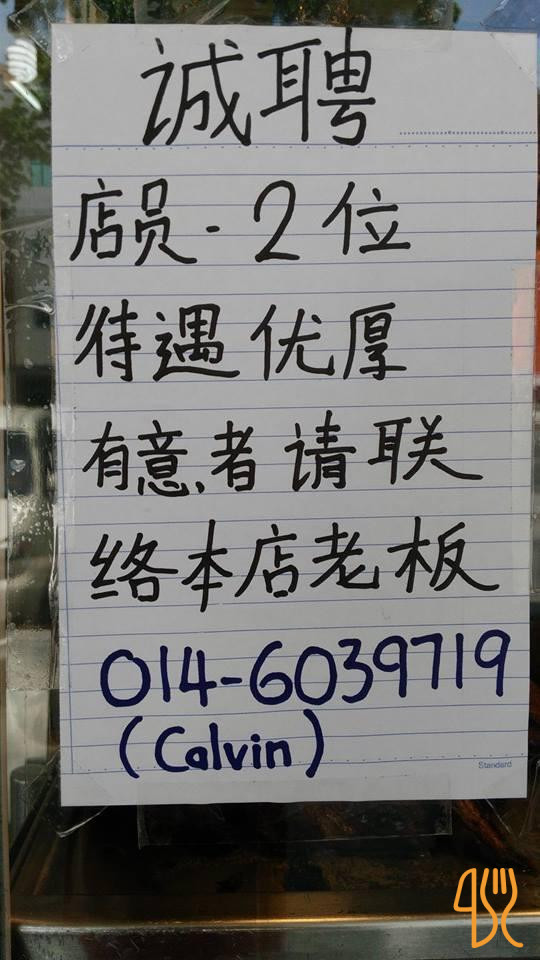 诚聘
店员-2位
待遇优厚
有意者请联
络本店老板
014-6039719
(Calvin)
Standard